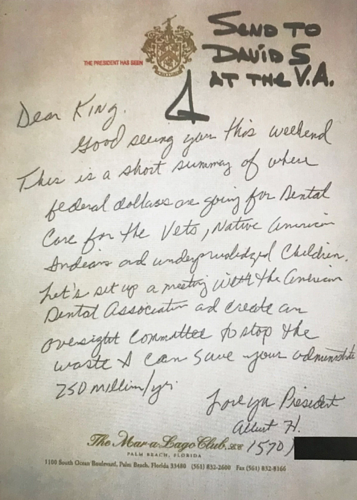 SEND TO
DAVID S
AT THE V.A.
THE PRESIDENT HAS SEEN
Dear King.
Good seeing you this weekend
This is a short summary of where
federal dollars are going for Dental
Care for the Vets, Native American
Indians and underprivileged Children.
Let's set up a meeting with the American
Dental Association ad create an
oversight committee to stop the
waste I can save your administ
250 million/yr.
Love ya President
Albert H.
(570)
The Mar-a-Lago Club,
PALM BEACH, FLORIDA
1100 South Ocean Boulevard, Palm Beach, Florida 33480 (561) 832-2600 Fax (561) 832-8166